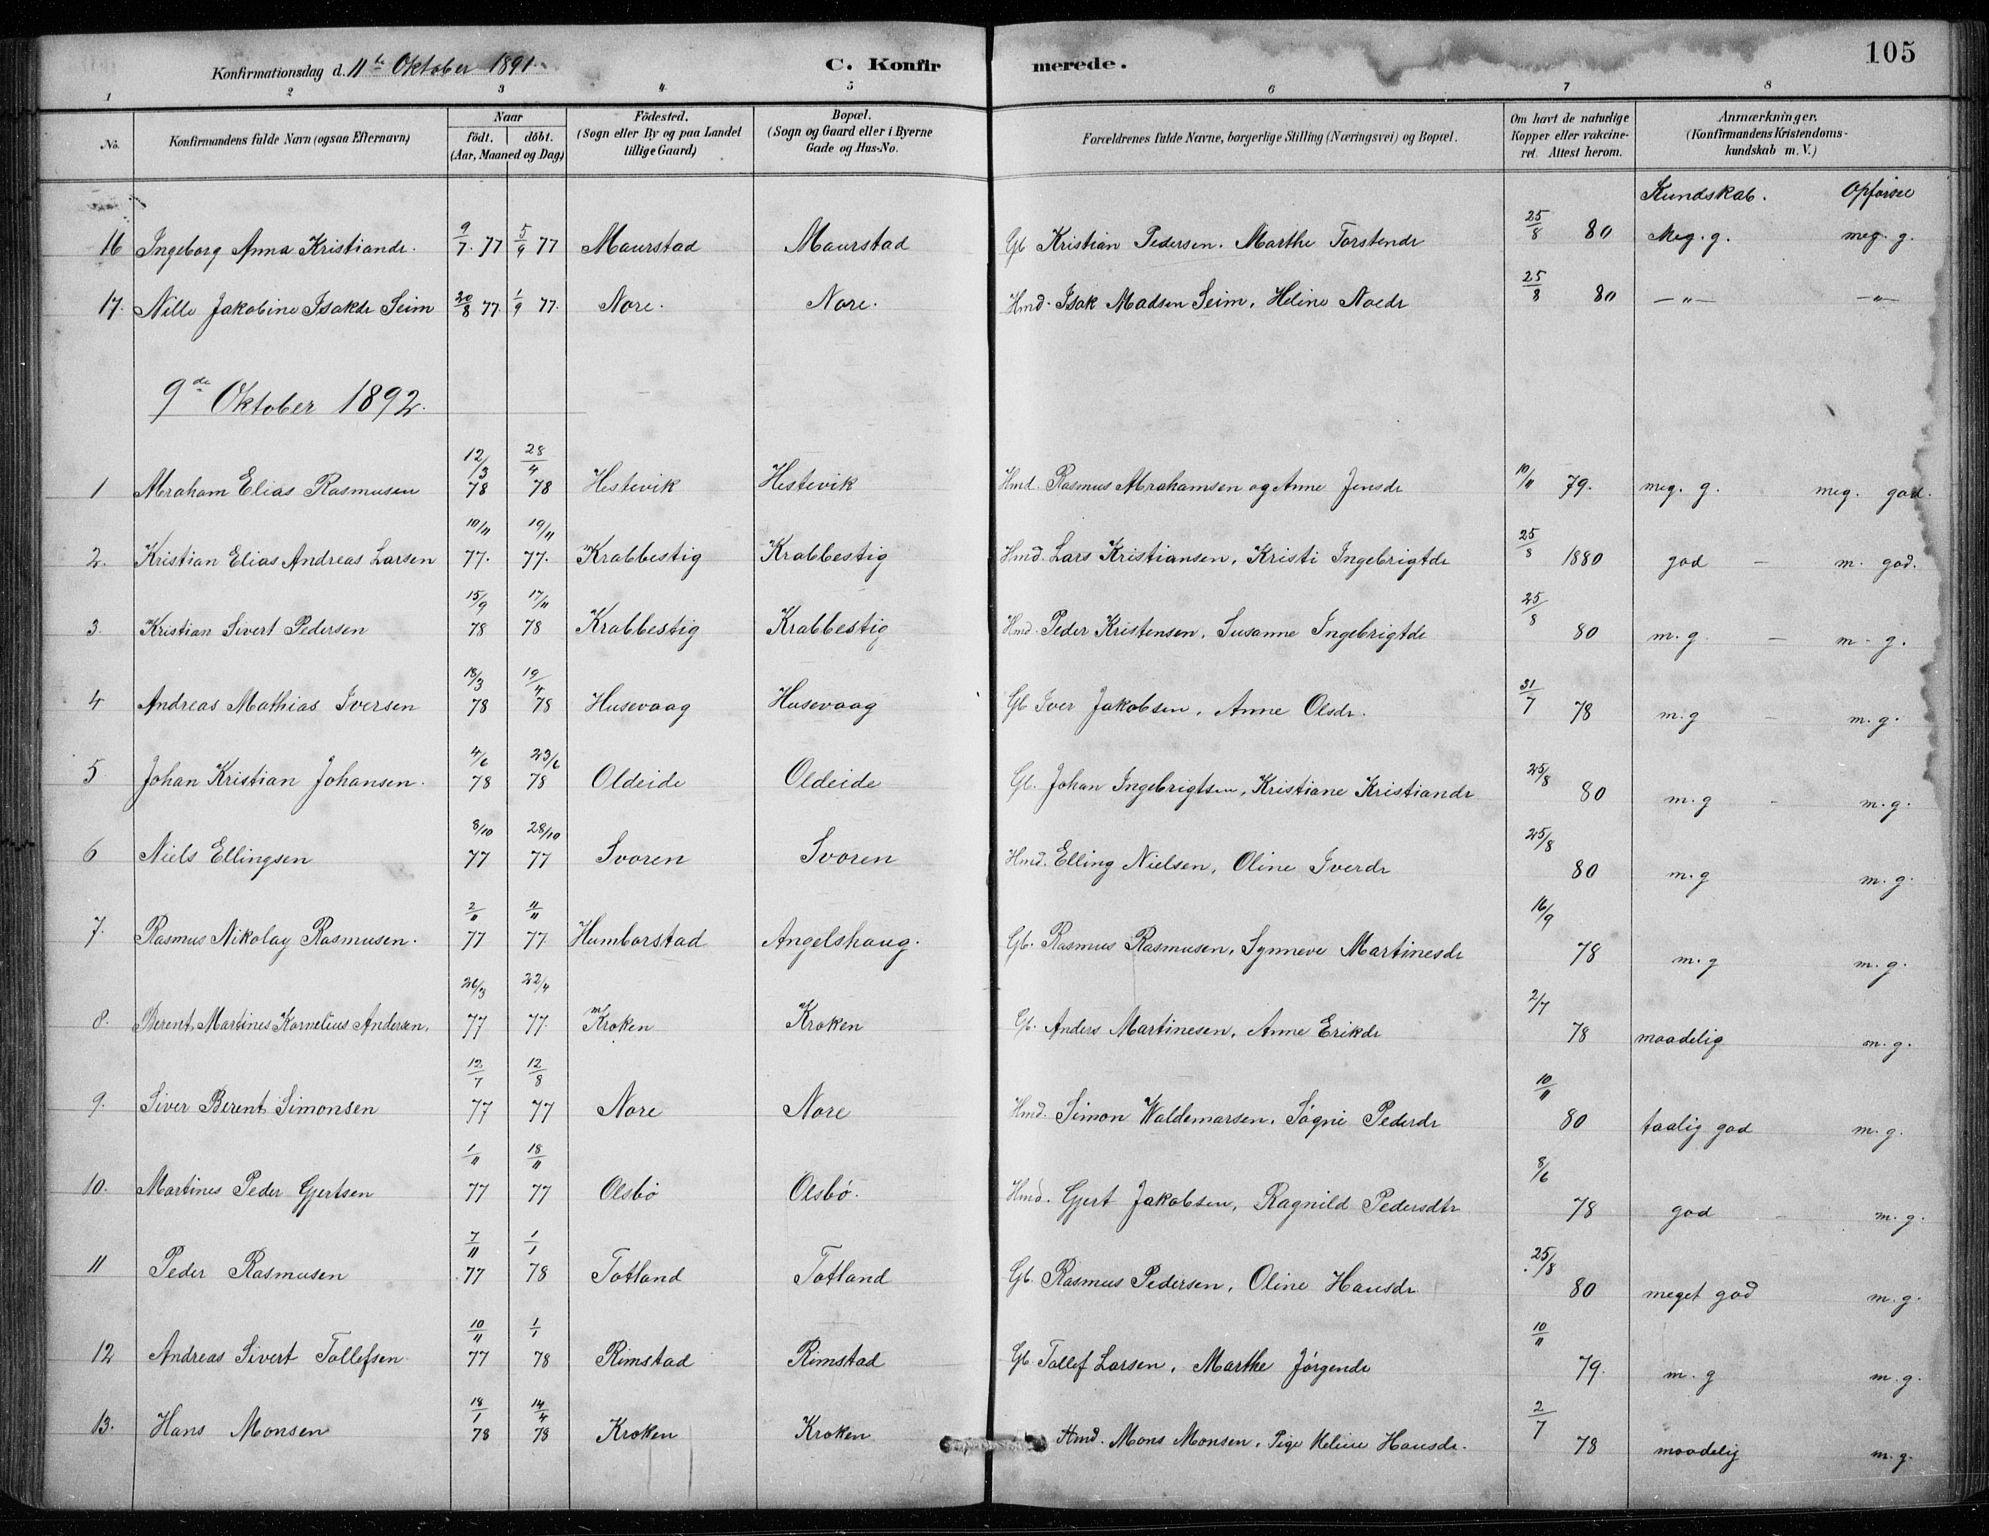 105
Konfirmationsdag d. 11te Oktober 1891. C. Konfirmerede.
1 2 3 4 5 6 7 8
No. Konfirmandens fulde Navn (ogsaa Efternavn) Naar födt. döbt. (Aar, Maaned og Dag) Födested. (Sogn eller By og paa Landet tillige Gaard) Bopæl. (Sogn og Gaard eller i Byerne Gade og Hus-No. Forældrenes fulde Navne, borgerlige Stilling (Næringsvei) og Bopæl. Om havt de naturlige Kopper eller vakcineret. Attest herom. Anmærkninger. (Konfirmandens Kristendomskundskab m. V.)
Kundskab. Opførsel
16 Ingeborg Anna Kristiandr. 9/7 77 5/9 77 Maurstad Maurstad Gb Kristian Pedersen. Marthe Torstendr 25/8 80 Meg. g. meg. g.
17. Nille Jakobine Isakdr Seim 20/8 77. 1/9 77. Nore. Nore. Hmd. Isak Madsen Seim, Heline Noedr 25/8 80 —"— —"—
9de Oktober 1892.
1 Abraham Elias Rasmusen 12/3 78 28/4 78 Hestevik Hestevik Hmd. Rasmus Abrahamsen og Anne Jensdr 10/11 79. meg. g. meg. god.
2. Kristian Elias Andreas Larsen 10/11 77. 19/11 77. Krabbestig Krabbestig Hmd. Lars Kristiansen, Kristi Ingebrigtdr 25/8 1880 god — m. god.
3. Kristian Sivert Pedersen 15/9 78 17/11 78 Krabbestig Krabbestig Hmd. Peder Kristensen, Susanne Ingebrigtdr 25/8 80 m. g — m. g.
4 Andreas Mathias Iversen 18/3 78 19/4 78 Husevaag Husevaag Gb Iver Jakobsen, Anne Olsdr. 31/7 78 m. g — m. g.
5 Johan Kristian Johansen. 4/6 78 23/6 78 Oldeide Oldeide Gb. Johan Ingebrigtsen, Kristiane Kristiandr 25/8 80 m. g - m. g.
6 Niels Ellingsen 8/10 77 28/10 77 Svoren Svoren Hmd. Elling Nielsen, Oline Iverdr 25/8 80 m. g m. g.
7. Rasmus Nikolay Rasmusen. 2/11 77 11/11 77. Humborstad Angelshaug. Gb. Rasmus Rasmusen, Synneve Martinesdr 16/9 78 m. g m. g.
8. Berent Martines Kornelius Andersen. 26/3 77 22/4 77. Kroken Kroken Gb. Anders Martinesen, Anne Erikdr 2/7 78 maadelig m. g.
9. Siver Berent Simonsen 12/7 77 12/8 77 Nore Nore Hmd. Simon Waldemarsen, Søgni Pederdr 10/11 80 taalig god m. g.
10. Martines Peder Gjertsen 1/11 77 18/11 77 Olsbø Olsbø. Hmd. Gjert Jakobsen, Ragnild Pedersdtr 8/6 78 god — m. g.
11 Peder Rasmusen 7/11 77 1/1 78 Totland Totland Gb. Rasmus Pedersen, Oline Hansdr. 25/8 80 meget god m. g.
12 Andreas Sivert Tollefsen 10/11 77 1/1 78 Rimstad Rimstad Gb Tollef Larsen, Marthe Jørgendr 10/11 79. m. g m. g.
13. Hans Monsen 18/1 78 14/4 78 Kroken Kroken Hmd. Mons Monsen, Pige Heline Hansdr. 2/7 78 maadelig m. g.